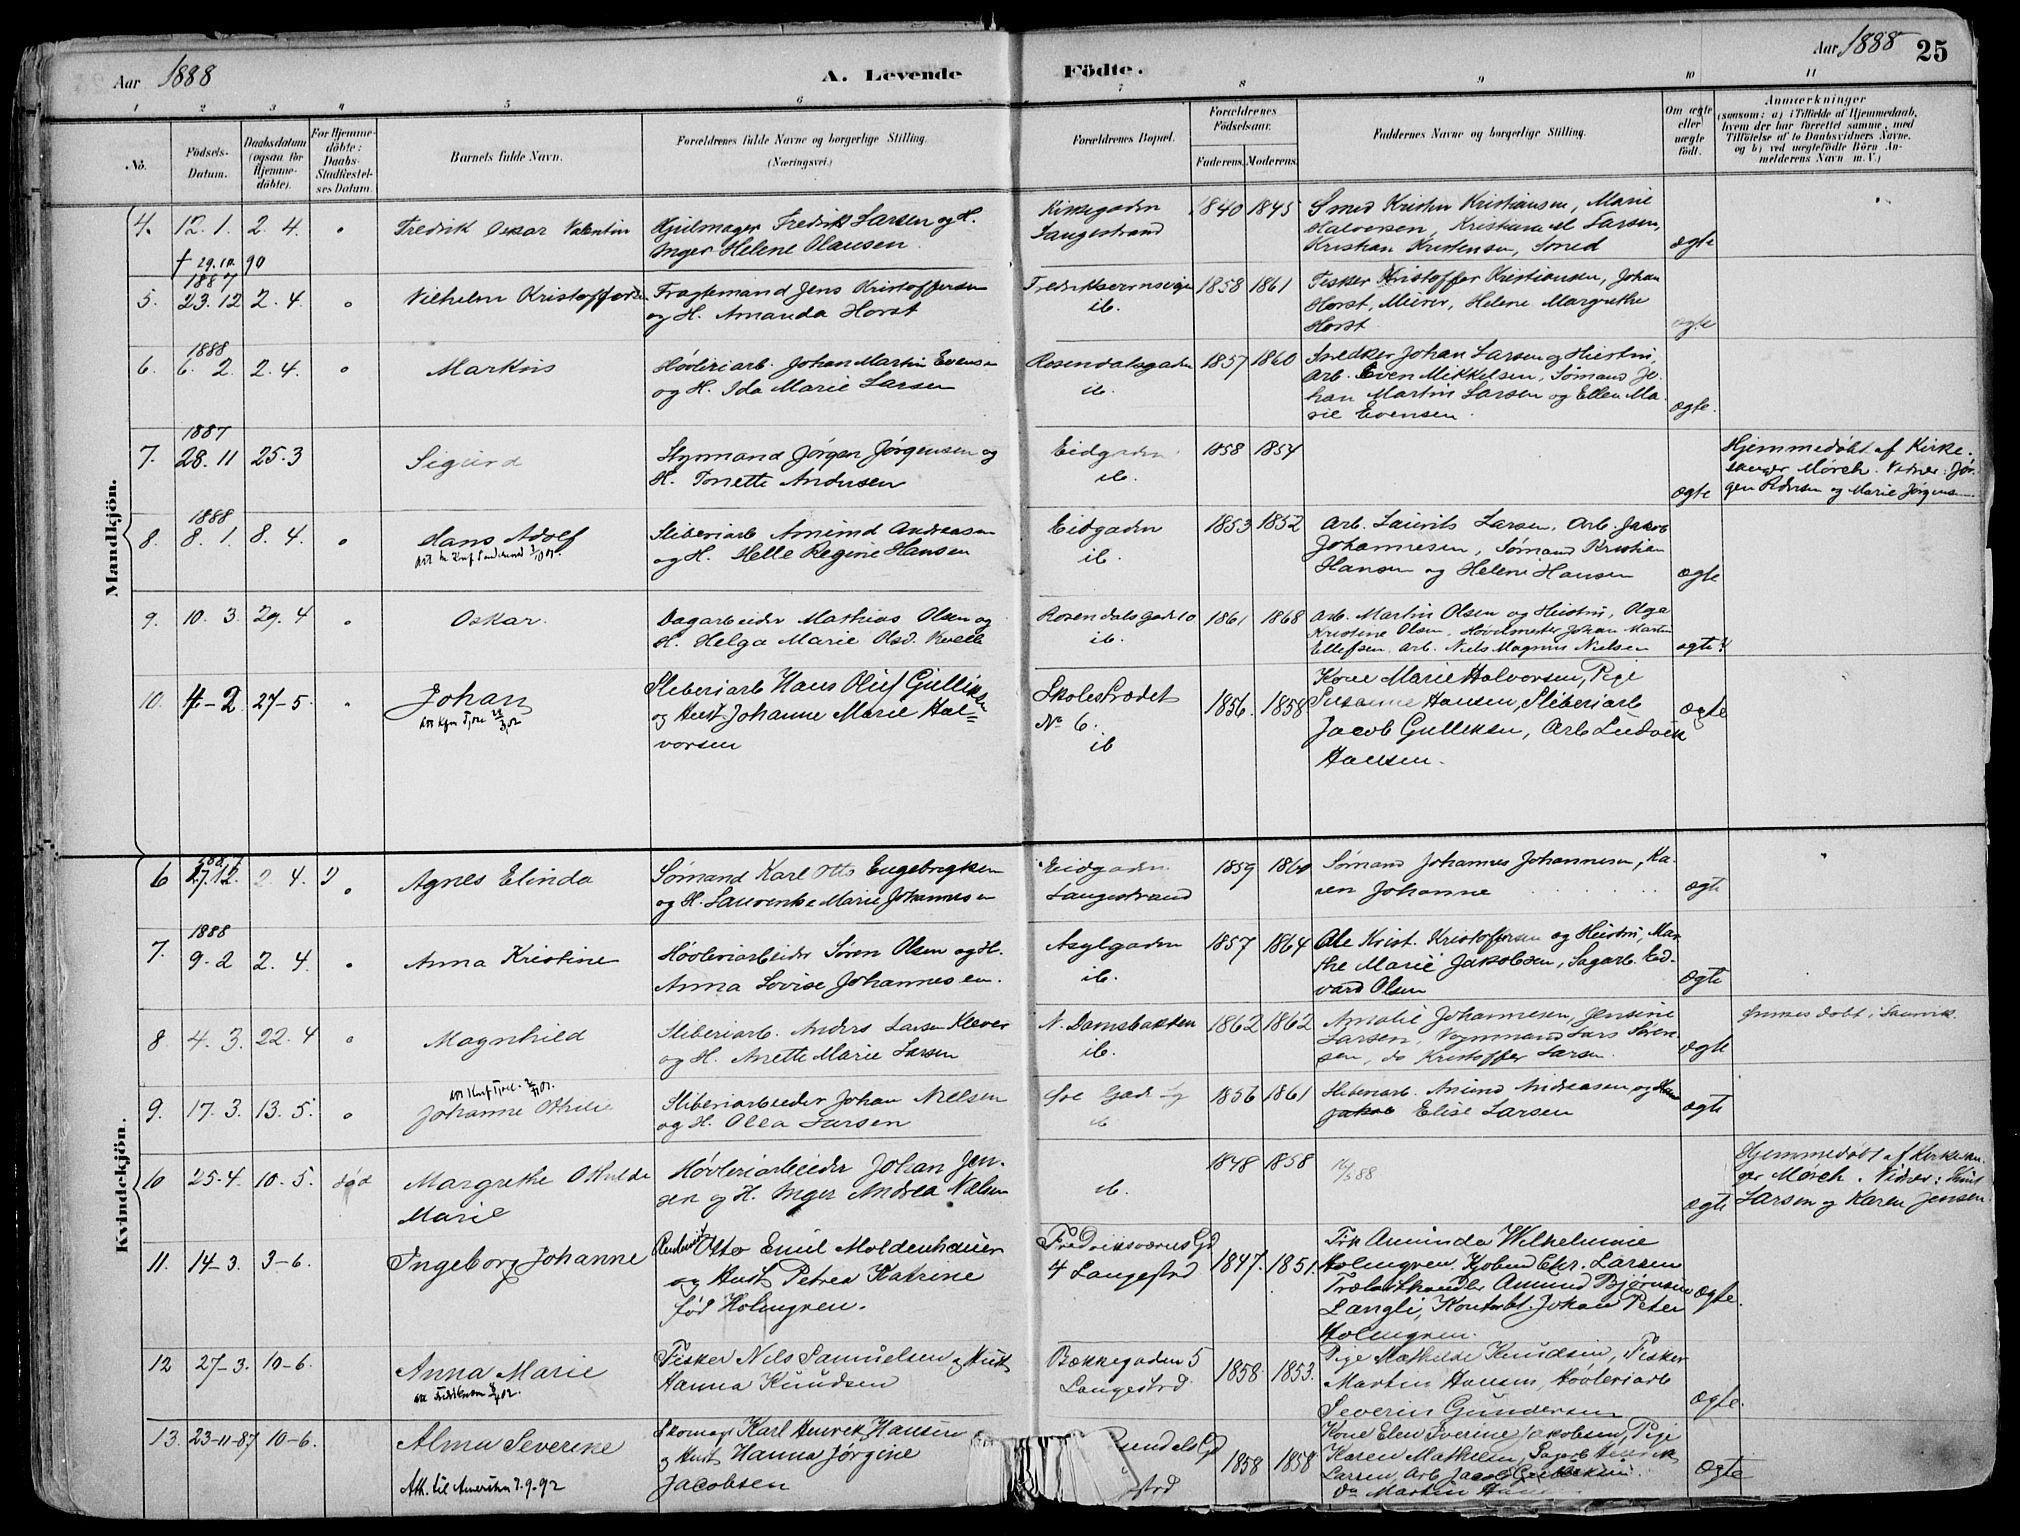 Aar 1888
A. Levende
Födte.
Aar 1888
25
1 2 3 4 5 6 7 8 9 10 11
No.
Födsels-
Datum.
Daabsdatum
(ogsaa för
Hjemme-
döbte).
For Hjemme-
döbte:
Daabs-
Stadfæstel-
ses Datum.
Barnets fulde Navn.
Forældrenes fulde Navne og borgerlige Stilling.
(Næringsvei.)
Forældrenes Bopæl.
Forældrenes
Födselsaar.
Faderens.
Moderens.
Faddernes Navne og borgerlige Stilling.
Om ægte
eller
uægte
födt.
Anmærkninger
(saasom: a) i Tilfælde af Hjemmedaab,
hvem der har forrettet samme, med
Tilföielse af to Daabsvidners Navne,
og b) ved uægtefödte Börn An-
melderens Navn m. V.)
Mandkjön.
4. 12. 1. 2. 4. Fredrik Oskar Valentin
† 29.10.90
Hjulmager Fredrik Larsen og H.
Inger Helene Olausen.
Kirkegaden
Langestrand
1840 1845
Smed Kristen Kristiansen, Marie
Halvorsen, Kristiana M Larsen,
Kristian Kristensen, Smed
ægte
1887
5. 23. 12 2. 4. Vilhelm Kristoffer
Fragtemand Jens Kristoffersen
og H. Amanda Horst
Fredriksværnsveien
ib.
1858 1861
Fisker Kristoffer Kristiansen, Johan
Horst, Meier, Helene Margrethe
Horst.
ægte
1888
6. 6. 2. 2. 4. Markus
Høvleriarb. Johan Martin Evensen
og H. Ida Marie Larsen
Rosendalsgaden
ib.
1857 1860
Snedker Johan Larsen og Hustru,
Arb. Even Mikkelsen, Sømand Jo-
han Martin Larsen og Ellen Ma-
rie Evensen.
ægte.
1887
7. 28. 11 25. 3 Sigurd
Styrmand Jørgen Jørgensen og
H. Tonette Andersen
Eidgaden
ib.
1858 1854
ægte
Hjemmedøbt af Kirke-
sanger Mørch. Vidner: Jør-
gen Pedersen og Marie Jørgensen
1888
8. 8. 1. 8. 4. Hans Adolf
Sliberiarb Amund Andreasen
og H. Helle Regine Hansen
Eidgaden
ib.
1853 1852
Arb. Laurits Larsen, Arb. Jakob
Johannesen, Sømand Kristian
Hansen og Helene Hansen
ægte
9. 10. 3. 29. 4 Oskar.
Dagarbeider Mathias Olsen og
H. Helga Marie Olsd.
Rosendalsgade 10
ib.
1861 1868
Arb. Martin Olsen og Hustru, Olga
Kristine Olsen, Høvelmester Johan Martin
Ellefsen, Arb. Niels Magnus Nielsen
ægte
10. 4-2 27-5. Johan
Sliberiarb Hans Oluf Gulliksen
og Hust Johanne Marie Hal-
vorsen
Skolestrædet
No 6.
ib
1856. 1858
Kone Marie Halvorsen, Pige
Susanne Hansen, Sliberiarb
Jacob Gulliksen, Arb Ludvik
Hansen.
ægte
Kvindekjön.
6 27.12. 2. 4. Agnes Elinda
Sømand Karl Otto Engebregtsen
og H. Laurentse Marie Johannesen
Eidgaden
Langestrand
1859 1860
Sømand Johannes Johannesen, Ka-
ren Johanne
ægte
1888
7. 9. 2 2. 4. Anna Kristine
Høvleriarbeider Søren Olsen og H.
Anna Lovise Johannesen.
Asylgaden
ib.
1857 1864
Ole Krist. Kristoffersen og Hustru, Mar-
the Marie Jakobsen, Sagarb. Ed-
vard Olsen
ægte
8 4. 3. 22. 4 Magnhild
Sliberiarb. Anders Larsen Klever
og H. Anette Marie Larsen
N. Damsbakken
ib.
1862 1862
Amalie Johannesen, Jensine
Larsen, Vognmand Lars Søren-
sen, do Kristoffer Larsen.
ægte
døbt i Laurvik.
9. 17. 3. 13. 5. Johanne Othilie
Sliberiarbeider Johan Nielsen
og H. Olea Larsen
1856 1861
Sliberiarb. Amund Andreasen og
Elise Larsen
ægte
10 25. 4. 10. 5. død Margrethe Othilde
Marie
Høvleriarbeider Johan Jen-
sen og H. Inger Andrea Nielsen
ib.
1848 1858
ægte
Hjemmedøbt af Kirkesan-
ger Mørch. Vidner:
Larsen og Karen Jensen
11. 14-3. 3-6. Ingeborg Johanne
Otto Emil Moldenhauer
og Hust Petrea Katrine
fød Holmgren.
Fredriksværns Gd
4 Langestrd
1847. 1851.
Frk Amunda Wilhelmine
Holmgren. Kjøbmd Chr. Larsen
Trælasthandler Amund Bjørnsen
Langli, Kontorbt. Johan Peter
Holmgren.
ægte.
12 27-3. 10-6. Anna Marie
Fisker Nils Samuelsen og Hust
Hanna Knudsen
Bækkegaden 5
Langestrd.
1858. 1853.
Pige Mathilde Knudsen, Fisker
Martin Hansen, Høvleriarb
Severin Gundersen
ægte.
13. 23-11-87 10-6. Alma Severine
Att. til Amerika 7.9.92
Skomager Karl Henrik Hansen
og Hust Hanna Jørgine
Jacobsen
1858 1858
Kone Elen Severine Jakobsen, Pige
Karen Mathilsen, Sagarb Henrik
Larsen, Arb Jacob Gulliksen.
Do Martin
ægte